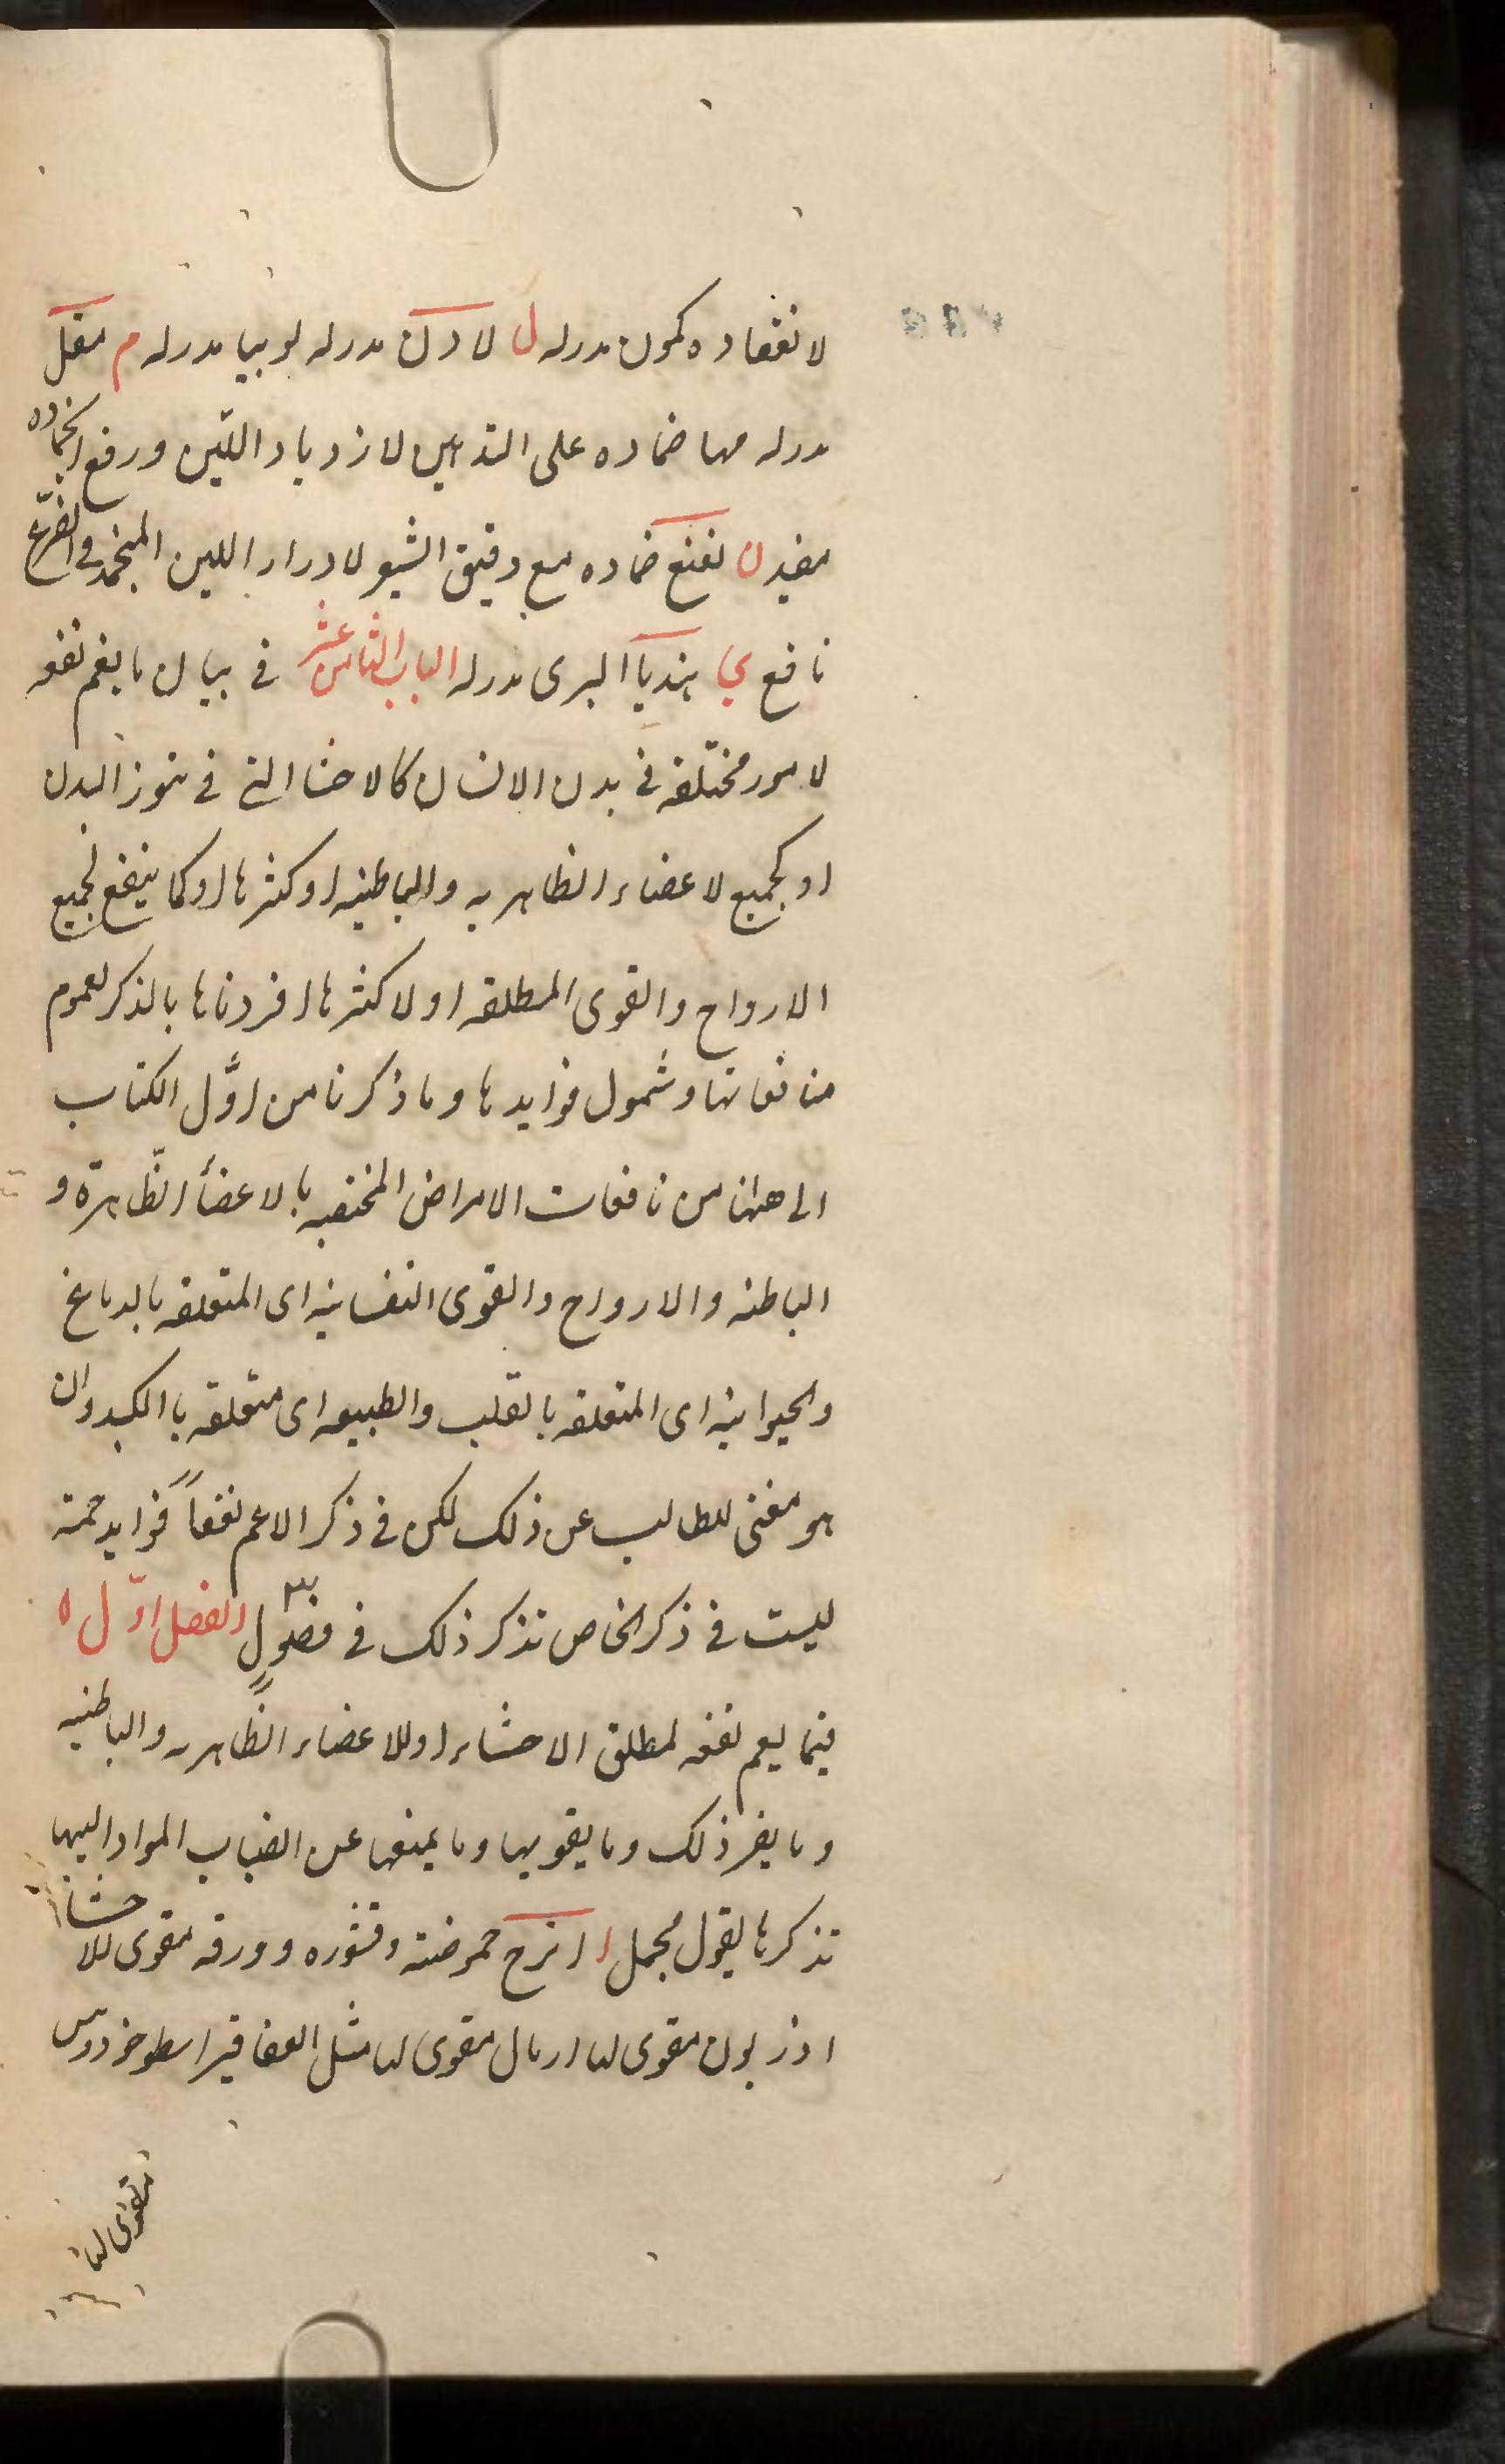 لانعقاده كمون مدرله ل لادن مدرله لوبيا مدرله م مقل
مدرله مها ضماده على الثديين لازدياد اللبن ورفع انجماده
مفيد ن نعنع ضماده مع دقيق الشعير لادرار اللبن المنجمد في الضرع
نافع ي هنديا البرى مدرله الباب الثامن عشر في بيان ما يعم نفعه
لامور مختلفه في بدن الانسان كالاحشا التي في تنور البدن
او لجميع لاعضاء الظاهريه والباطنيه او كثرها او كما ينفع لجميع
الارواح والقوى المطلقه او لاكثرها افردناها بالذكر لعموم
منافعاتها وشمول فوايدها وما ذكرنا من اوّل الكتاب
الى ههنا من نافعات الامراض المختصه بالاعضأ الظّاهرة و
الباطنه والارواح والقوى النفسانيه اى المتعلقه بالدماغ
والحيوانيه اى المتعلقه بالقلب والطبيعه اى متعلقه باالكبد وان
هو مغنى للطالب عن ذلك لكن في ذكر الاعم نفعاً فوايد جمة
ليست في ذكر الخاص نذكر ذلك في فصولٍ الفصل اوّل
فيما يعم نفعه لمطلق الاحشاء او للاعضاء الظّاهريه والباطنيه
وما يضر ذلك وما يقويها وما يمنعها عن انصباب المواد اليها
نذكرها بقول مجمل ا اترج حموضته وقشوره وورقه مقوى للاحشا
اذربون مقوى لها ارمال مقوى لها مثل العقاقير اسطوخودوس
مقوى لها